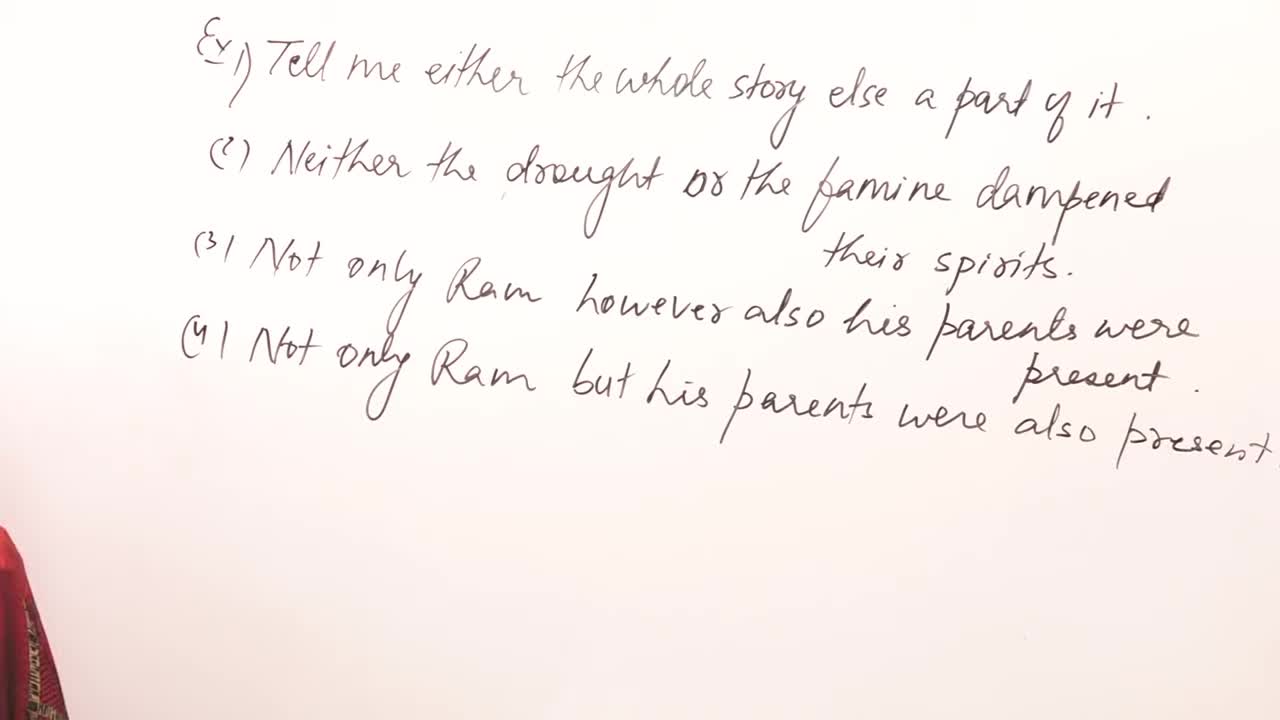 Ex 1) Tell me either the whole story else a part of it.
(2) Neither the drought or the famine dampened
their spirits.
(3) Not only Ram however also his parents were
present.
(4) Not only Ram but his parents were also present.